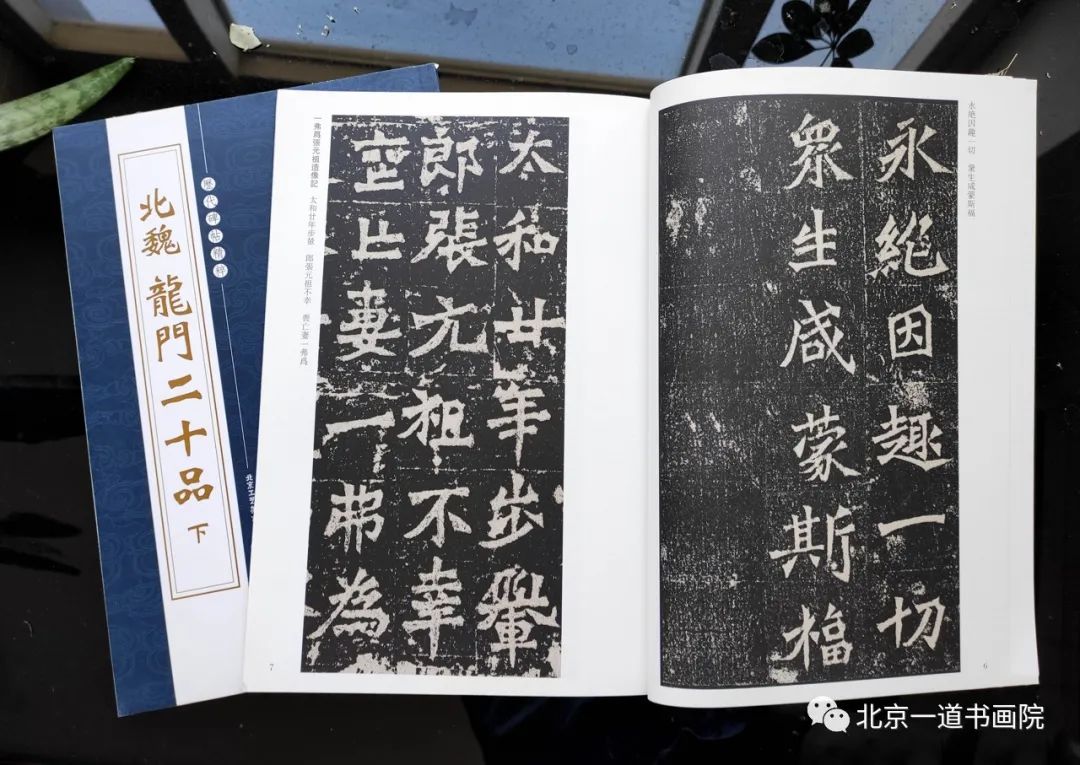 歷代碑帖精粹
北魏 龍門二十品 下
永絶因趣一切 衆生咸蒙斯福
永絶因趣一切
衆生咸蒙斯福
6
太和廿年步轝
郎張元祖不幸
喪亡妻一弗為
一弗爲張元祖造像記 太和廿年步轝 郎張元祖不幸 喪亡妻一弗爲
7
北京一道书画院